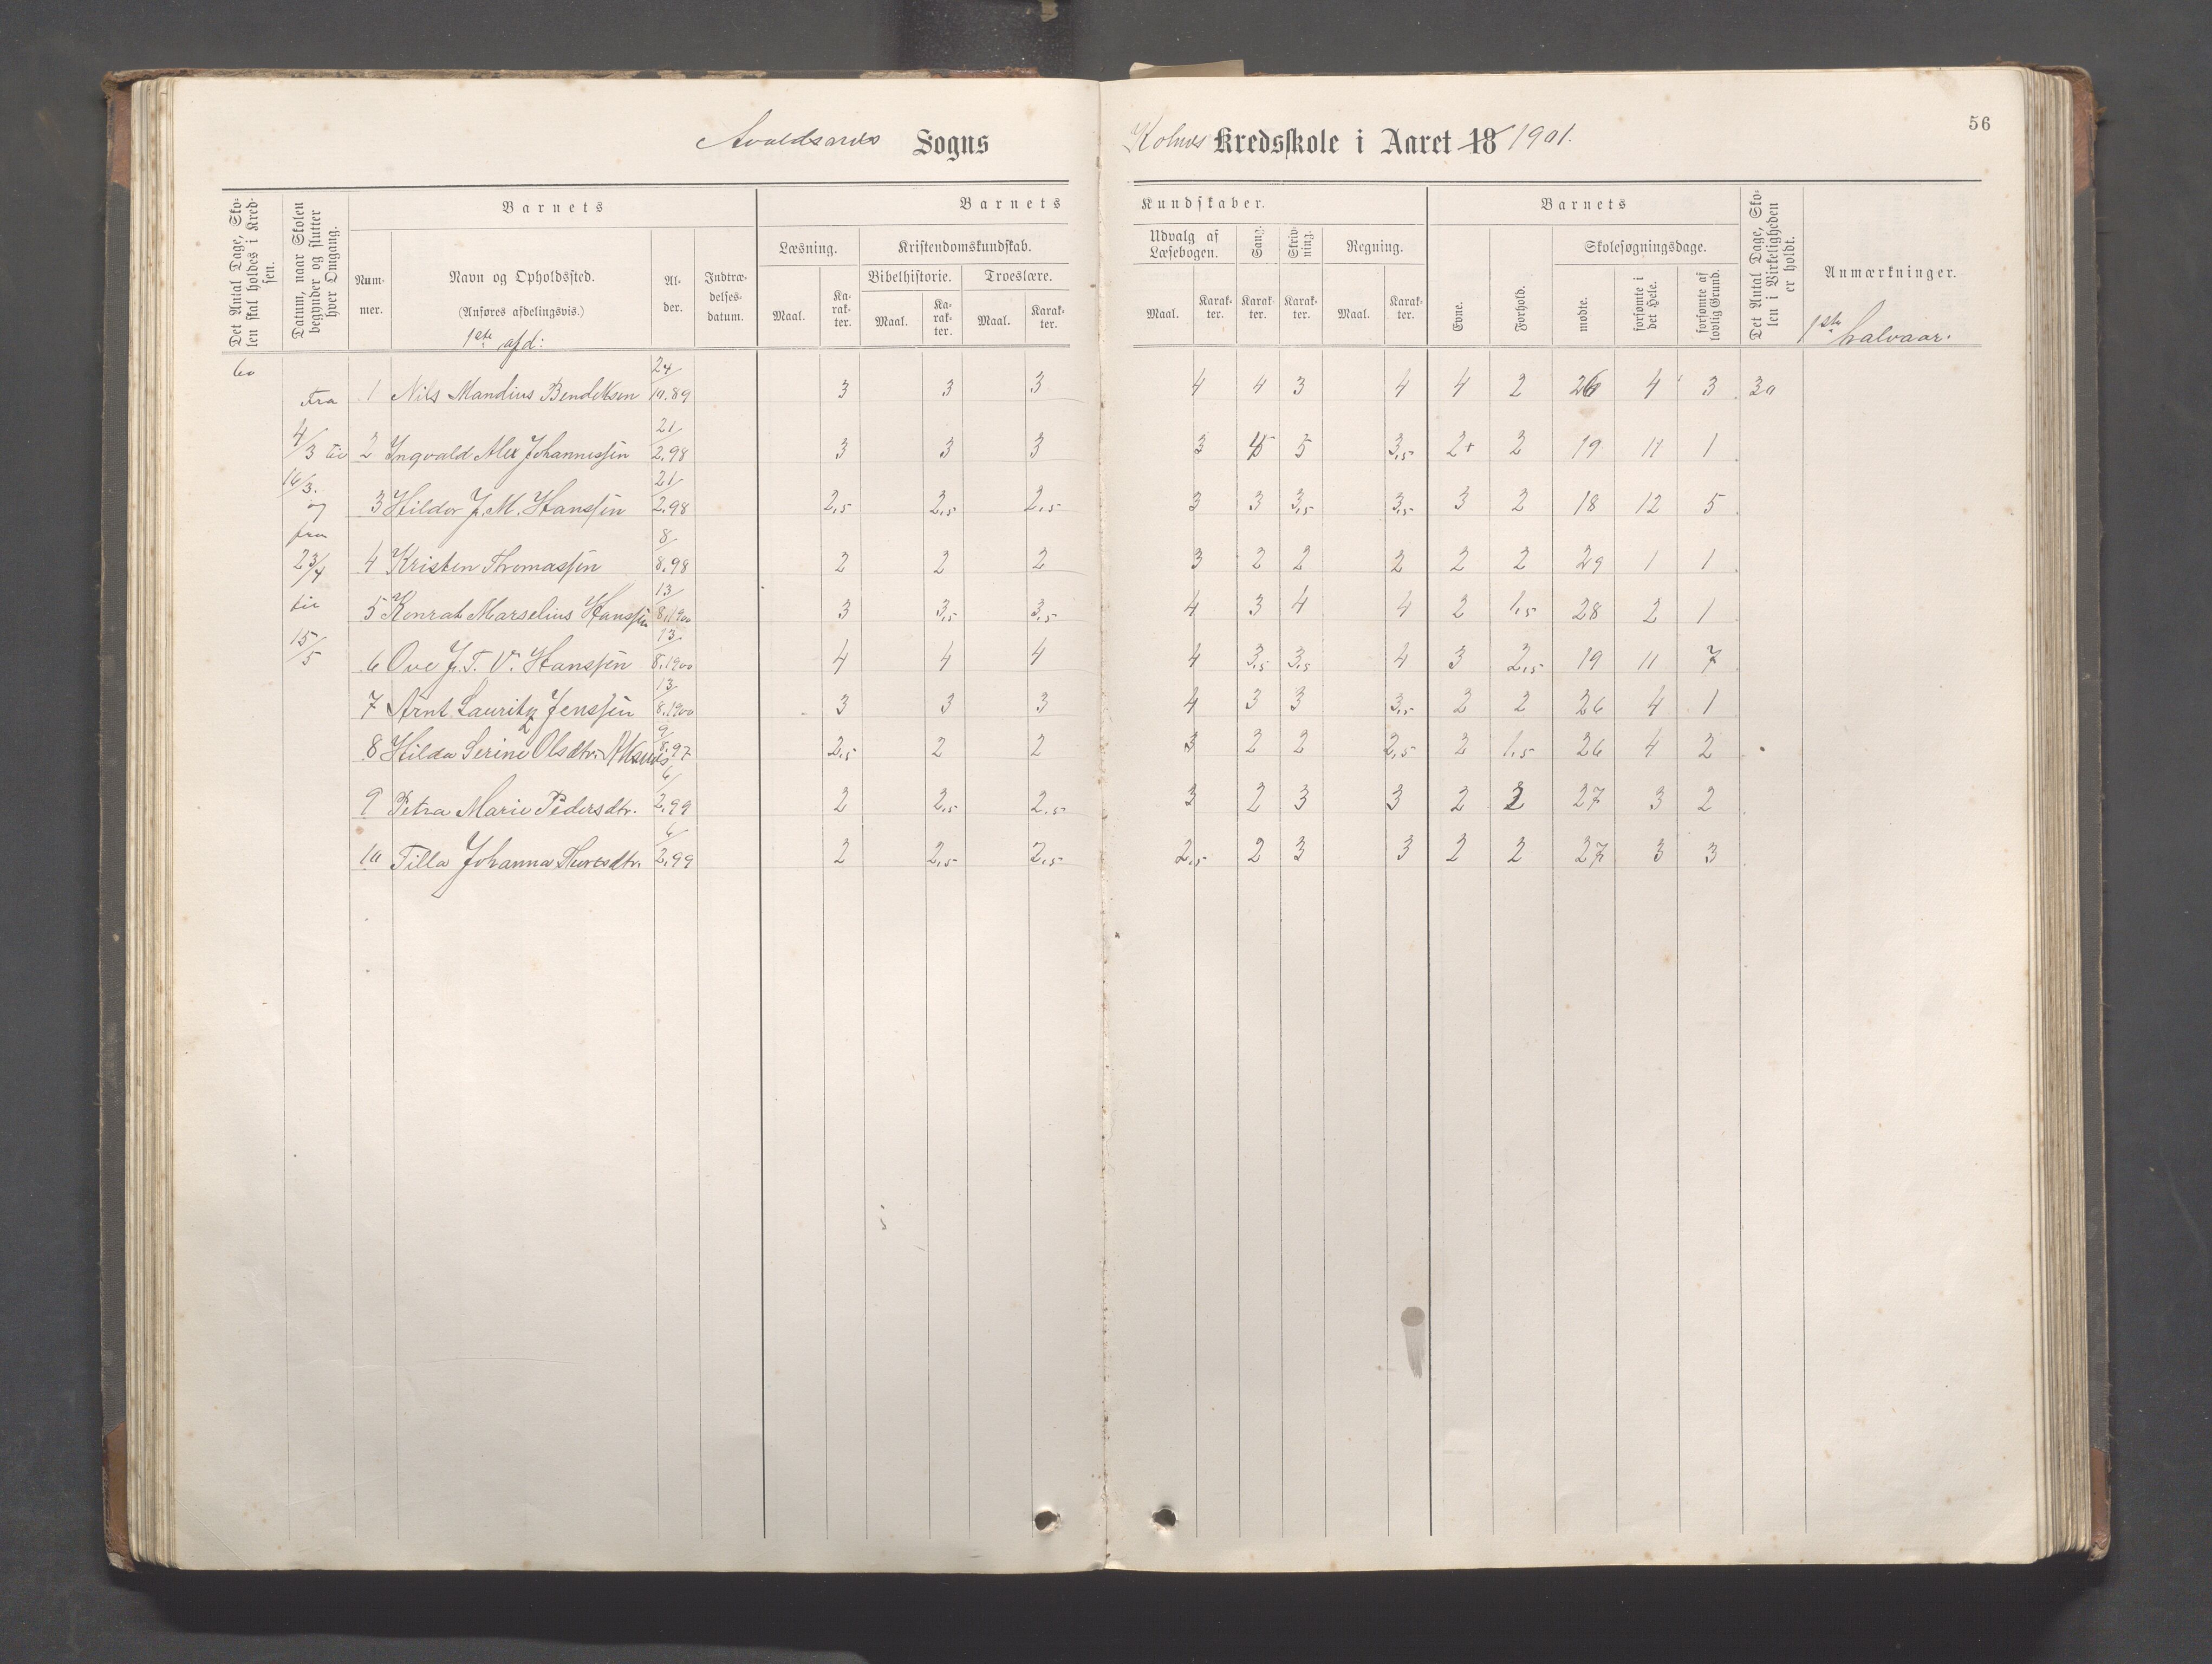 56
Avaldsnes Sogns Kolnes Kredsskole i Aaret 18 1901.
Det Antal Dage, Skolen skal holdes i Kredsen.
Datum, naar Skolen begynder og slutter hver Omgang.
Barnets
Nummer.
Navn og Opholdssted.
(Anføres afdelingsvis.)
1ste afd:
Alder.
Indtrædelsesdatum.
Barnets Kundskaber.
Læsning.
Maal. Karakter.
Kristendomskundskab.
Bibelhistorie.
Maal. Karakter.
Troeslære.
Maal. Karakter.
Udvalg af Læsebogen.
Maal. Karakter.
Sang.
Karakter.
Skrivning.
Karakter.
Regning.
Maal. Karakter.
Barnets
Evne.
Forhold.
Skolesøgningsdage.
mødte.
forsømte i det Hele.
forsømte af lovlig Grund.
Det Antal Dage, Skolen i Virkeligheden er holdt.
Anmærkninger.
1ste halvaar.
60
Fra 4/3 til 16/3. og fra 23/4 til 15/5
1 Nils Mandius Bendiksen 24/10.89 3 3 3 4 4 3 4 4 2 26 4 3 30
2 Ingvald Alex Johannessen 21/2.98 3 3 3 3 5 3,5 2+ 2 19 11 1
3 Hildor J. M. Hanssen 21/2.98 2,5 2,5 2,5 3 3 3,5 3,5 3 2 18 12 5
4 Kristen Thomassen 8/8.98 2 2 2 3 2 2 2 2 2 29 1 1
5 Konrad Marselius Hanssen 13/8.1900 3 3,5 3,5 4 3 4 4 2 1,5 28 2 1
6 Ove J. T. V. Hanssen 13/8.1900 4 4 4 4 3,5 3,5 4 3 2,5 19 11 7
7 Arnt Lauritz Jenssen 13/8.1900 3 3 3 4 3 3 3,5 2 2 26 4 1
8 Hilda Serine Olsdtr. 9/8.97 2,5 2 2 3 2 2 2,5 2 1,5 26 4 2
9 Petra Marie Pedersdtr. 6/2.99 2 2,5 2,5 3 2 3 3 2 2 27 3 2
10 Tilla Johanna Thoresdtr. 6/2.99 2 2,5 2,5 2,5 2 3 3 2 2 27 3 3